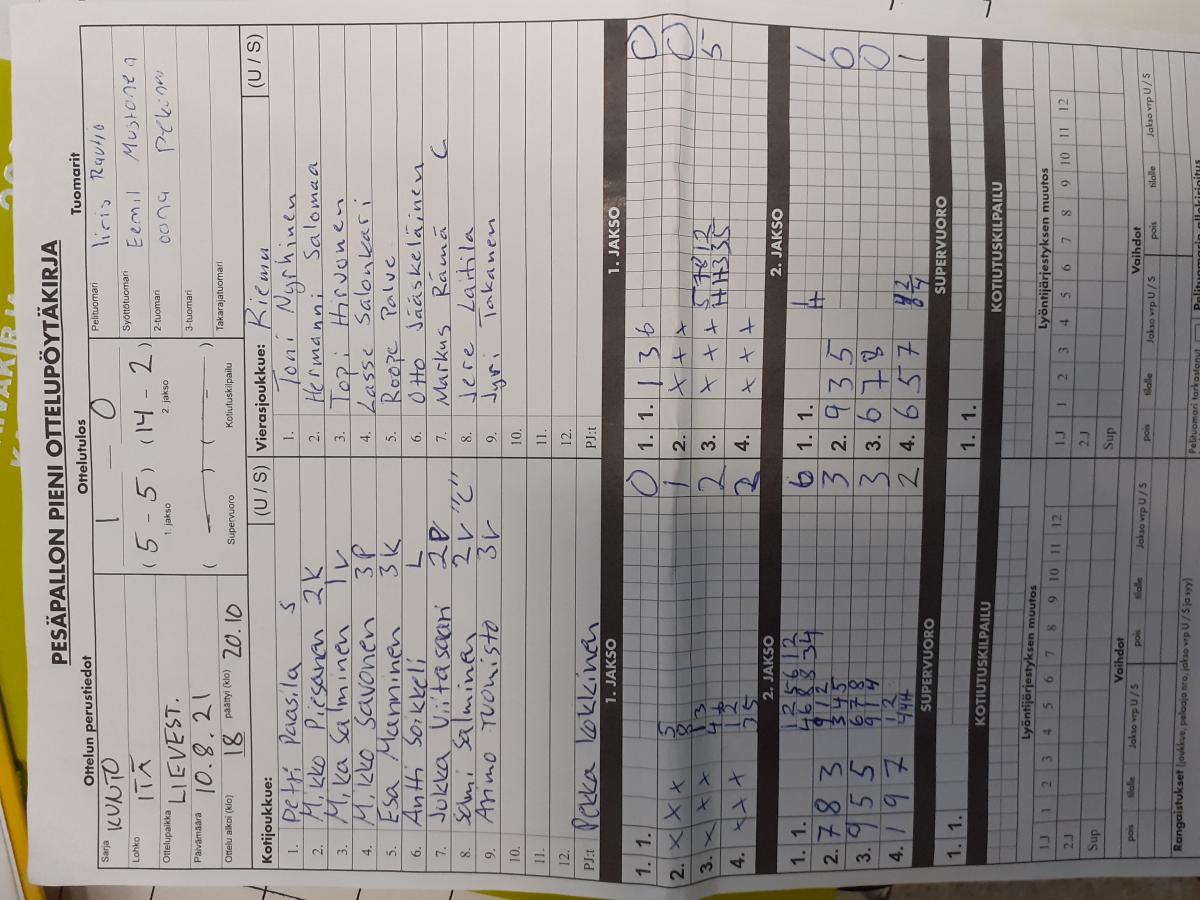 PESÄPALLON PIENI OTTELUPÖYTÄKIRJA
Ottelun perustiedot
Ottelutulos
Tuomarit
Sarja KUNTO
Lohko ITÄ
Ottelupaikka LIEVEST.
Päivämäärä 10.8.21
Ottelu alkoi (klo) 18 päättyi (klo) 20.10
1 — 0
( 5 - 5 ) ( 14 - 2 )
1. jakso 2. jakso
( — ) ( — )
Supervuoro Kotiutuskilpailu
Pelituomari Iiris Rautio
Syöttötuomari Eemil Mustonen
2-tuomari oona Pekinn
3-tuomari
Takarajatuomari
Kotijoukkue: (U / S)
1. Petti Paasila S
2. Mikko Piesanen 2K
3. Mika Salminen 1v
4. Mikko Savonen 3P
5. Esa Manninen 3K
6. Antti Soikkeli L
7. Jukka Viitasaari 2P
8. Selmi Salminen 2v "C"
9. Arimo Tuomisto 3v
10.
11.
12.
PJ:t Pekka Kokkinen
Vierasjoukkue: Riemu (U / S)
1. Toni Nyrhinen
2. Hermanni Salomaa
3. Topi Hirvonen
4. Lasse Salonkari
5. Roope Palve
6. Otto Jääskeläinen
7. Markus Rämä C
8. Jere Laitila
9. Jyri Takanen
10.
11.
12.
PJ:t
1. JAKSO
1. 1. 0
2. x x x 5 8 1
3. x x x 2
4. x x x 12 35 2
1. JAKSO
1. 1. 1 3 6 0
2. x x x 0
3. x x x 5
4. x x x
2. JAKSO
1. 1. 6
2. 7 8 3 912 345 3
3. 9 5 5 678 914 3
4. 1 9 7 2
2. JAKSO
1. 1. 1
2. 9 3 5 0
3. 6 7 8 0
4. 6 5 7 1
SUPERVUORO
1. 1.
SUPERVUORO
1. 1.
KOTIUTUSKILPAILU
KOTIUTUSKILPAILU
Lyöntijärjestyksen muutos
1.J 1 2 3 4 5 6 7 8 9 10 11 12
2.J
Sup
Lyöntijärjestyksen muutos
1.J 1 2 3 4 5 6 7 8 9 10 11 12
2.J
Sup
Vaihdot
pois tilalle Jakso vrp U / S pois tilalle Jakso vrp U / S
Vaihdot
pois tilalle Jakso vrp U / S pois tilalle Jakso vrp U / S
Rangaistukset (joukkue, pelaaja nro, jakso vrp U / S ja syy)
Pelituomari tarkastanut